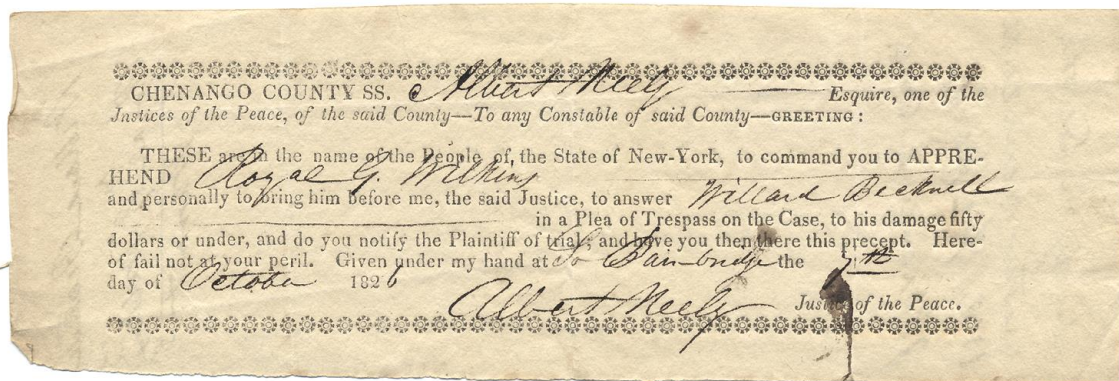 CHENANGO COUNTY SS. Albert Neely Esquire, one of the
Justices of the Peace, of the said County—To any Constable of said County—GREETING:
THESE are in the name of the People of, the State of New-York, to command you to APPRE-
HEND Royal G. Wilkins
and personally to bring him before me, the said Justice, to answer Willard Becknell
in a Plea of Trespass on the Case, to his damage fifty
dollars or under, and do you notify the Plaintiff of trial; and have you then there this precept. Here-
of fail not at your peril. Given under my hand at So Bainbridge the 7th
day of October 1826
Albert Neely Justice of the Peace.